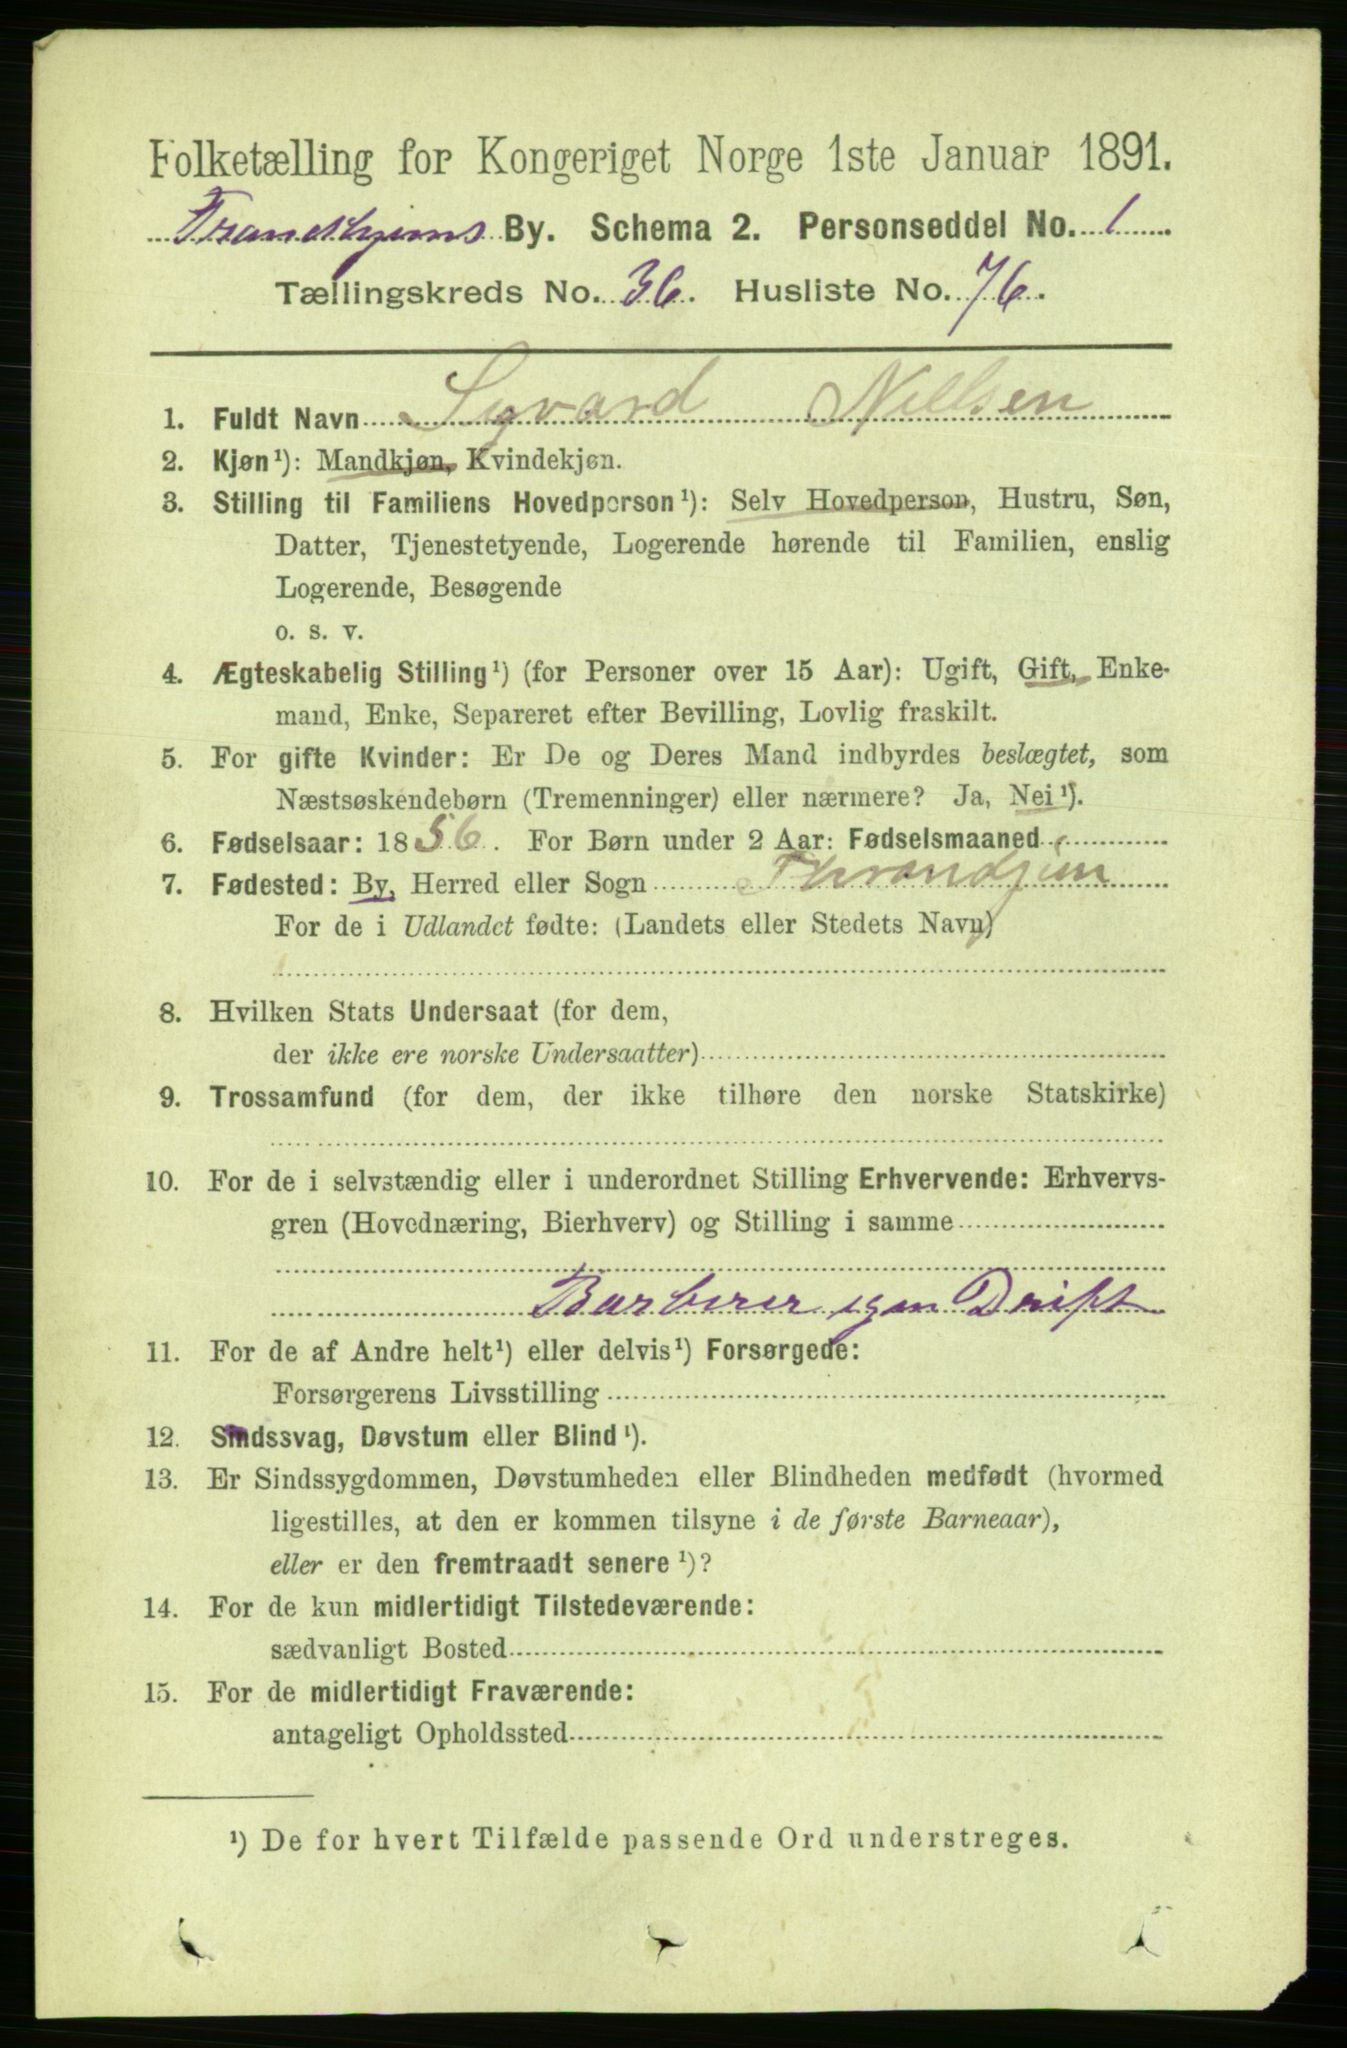 Folketælling for Kongeriget Norge 1ste Januar 1891.
Trondhjems By. Schema 2. Personseddel No. 1
Tællingskreds No. 36. Husliste No. 76.
1. Fuldt Navn Sigvard Nielsen
2. Kjøn¹): Mandkjøn, Kvindekjøn.
3. Stilling til Familiens Hovedperson¹): Selv Hovedperson, Hustru, Søn,
Datter, Tjenestetyende, Logerende hørende til Familien, enslig
Logerende, Besøgende
o. s. v.
4. Ægteskabelig Stilling¹) (for Personer over 15 Aar): Ugift, Gift, Enke-
mand, Enke, Separeret efter Bevilling, Lovlig fraskilt.
5. For gifte Kvinder: Er De og Deres Mand indbyrdes beslægtet, som
Næstsøskendebørn (Tremenninger) eller nærmere? Ja, Nei¹).
6. Fødselsaar: 1856. For Børn under 2 Aar: Fødselsmaaned
7. Fødested: By, Herred eller Sogn Throndjem
For de i Udlandet fødte: (Landets eller Stedets Navn)
8. Hvilken Stats Undersaat (for dem,
der ikke ere norske Undersaatter)
9. Trossamfund (for dem, der ikke tilhøre den norske Statskirke)
10. For de i selvstændig eller i underordnet Stilling Erhvervende: Erhvervs-
gren (Hovednæring, Bierhverv) og Stilling i samme
Barberer egen Drift
11. For de af Andre helt¹) eller delvis¹) Forsørgede:
Forsørgerens Livsstilling
12. Sindssvag, Døvstum eller Blind¹).
13. Er Sindssygdommen, Døvstumheden eller Blindheden medfødt (hvormed
ligestilles, at den er kommen tilsyne i de første Barneaar),
eller er den fremtraadt senere¹)?
14. For de kun midlertidigt Tilstedeværende:
sædvanligt Bosted
15. For de midlertidigt Fraværende:
antageligt Opholdssted
¹) De for hvert Tilfælde passende Ord understreges.